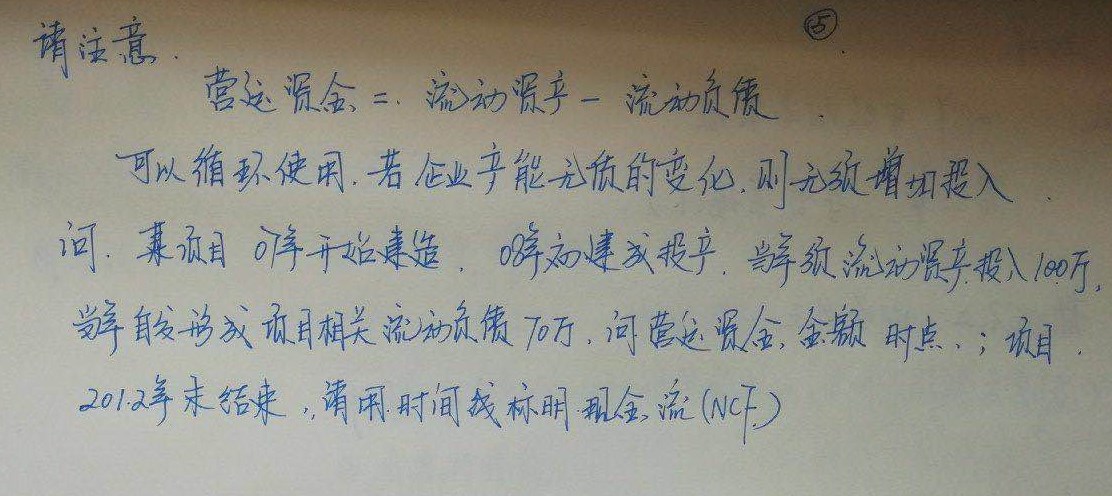 ⑤
请注意.
营运资金 = 流动资产 - 流动负债.
可以循环使用.若企业产能无质的变化,则无须增加投入.
问.某项目 07年开始建造,08年初建成投产,当年须流动资产投入100万,
当年自发形成项目相关流动负债70万,问营运资金,金额 时点.;项目.
2012年末结束,请用时间线标明现金流(NCF)